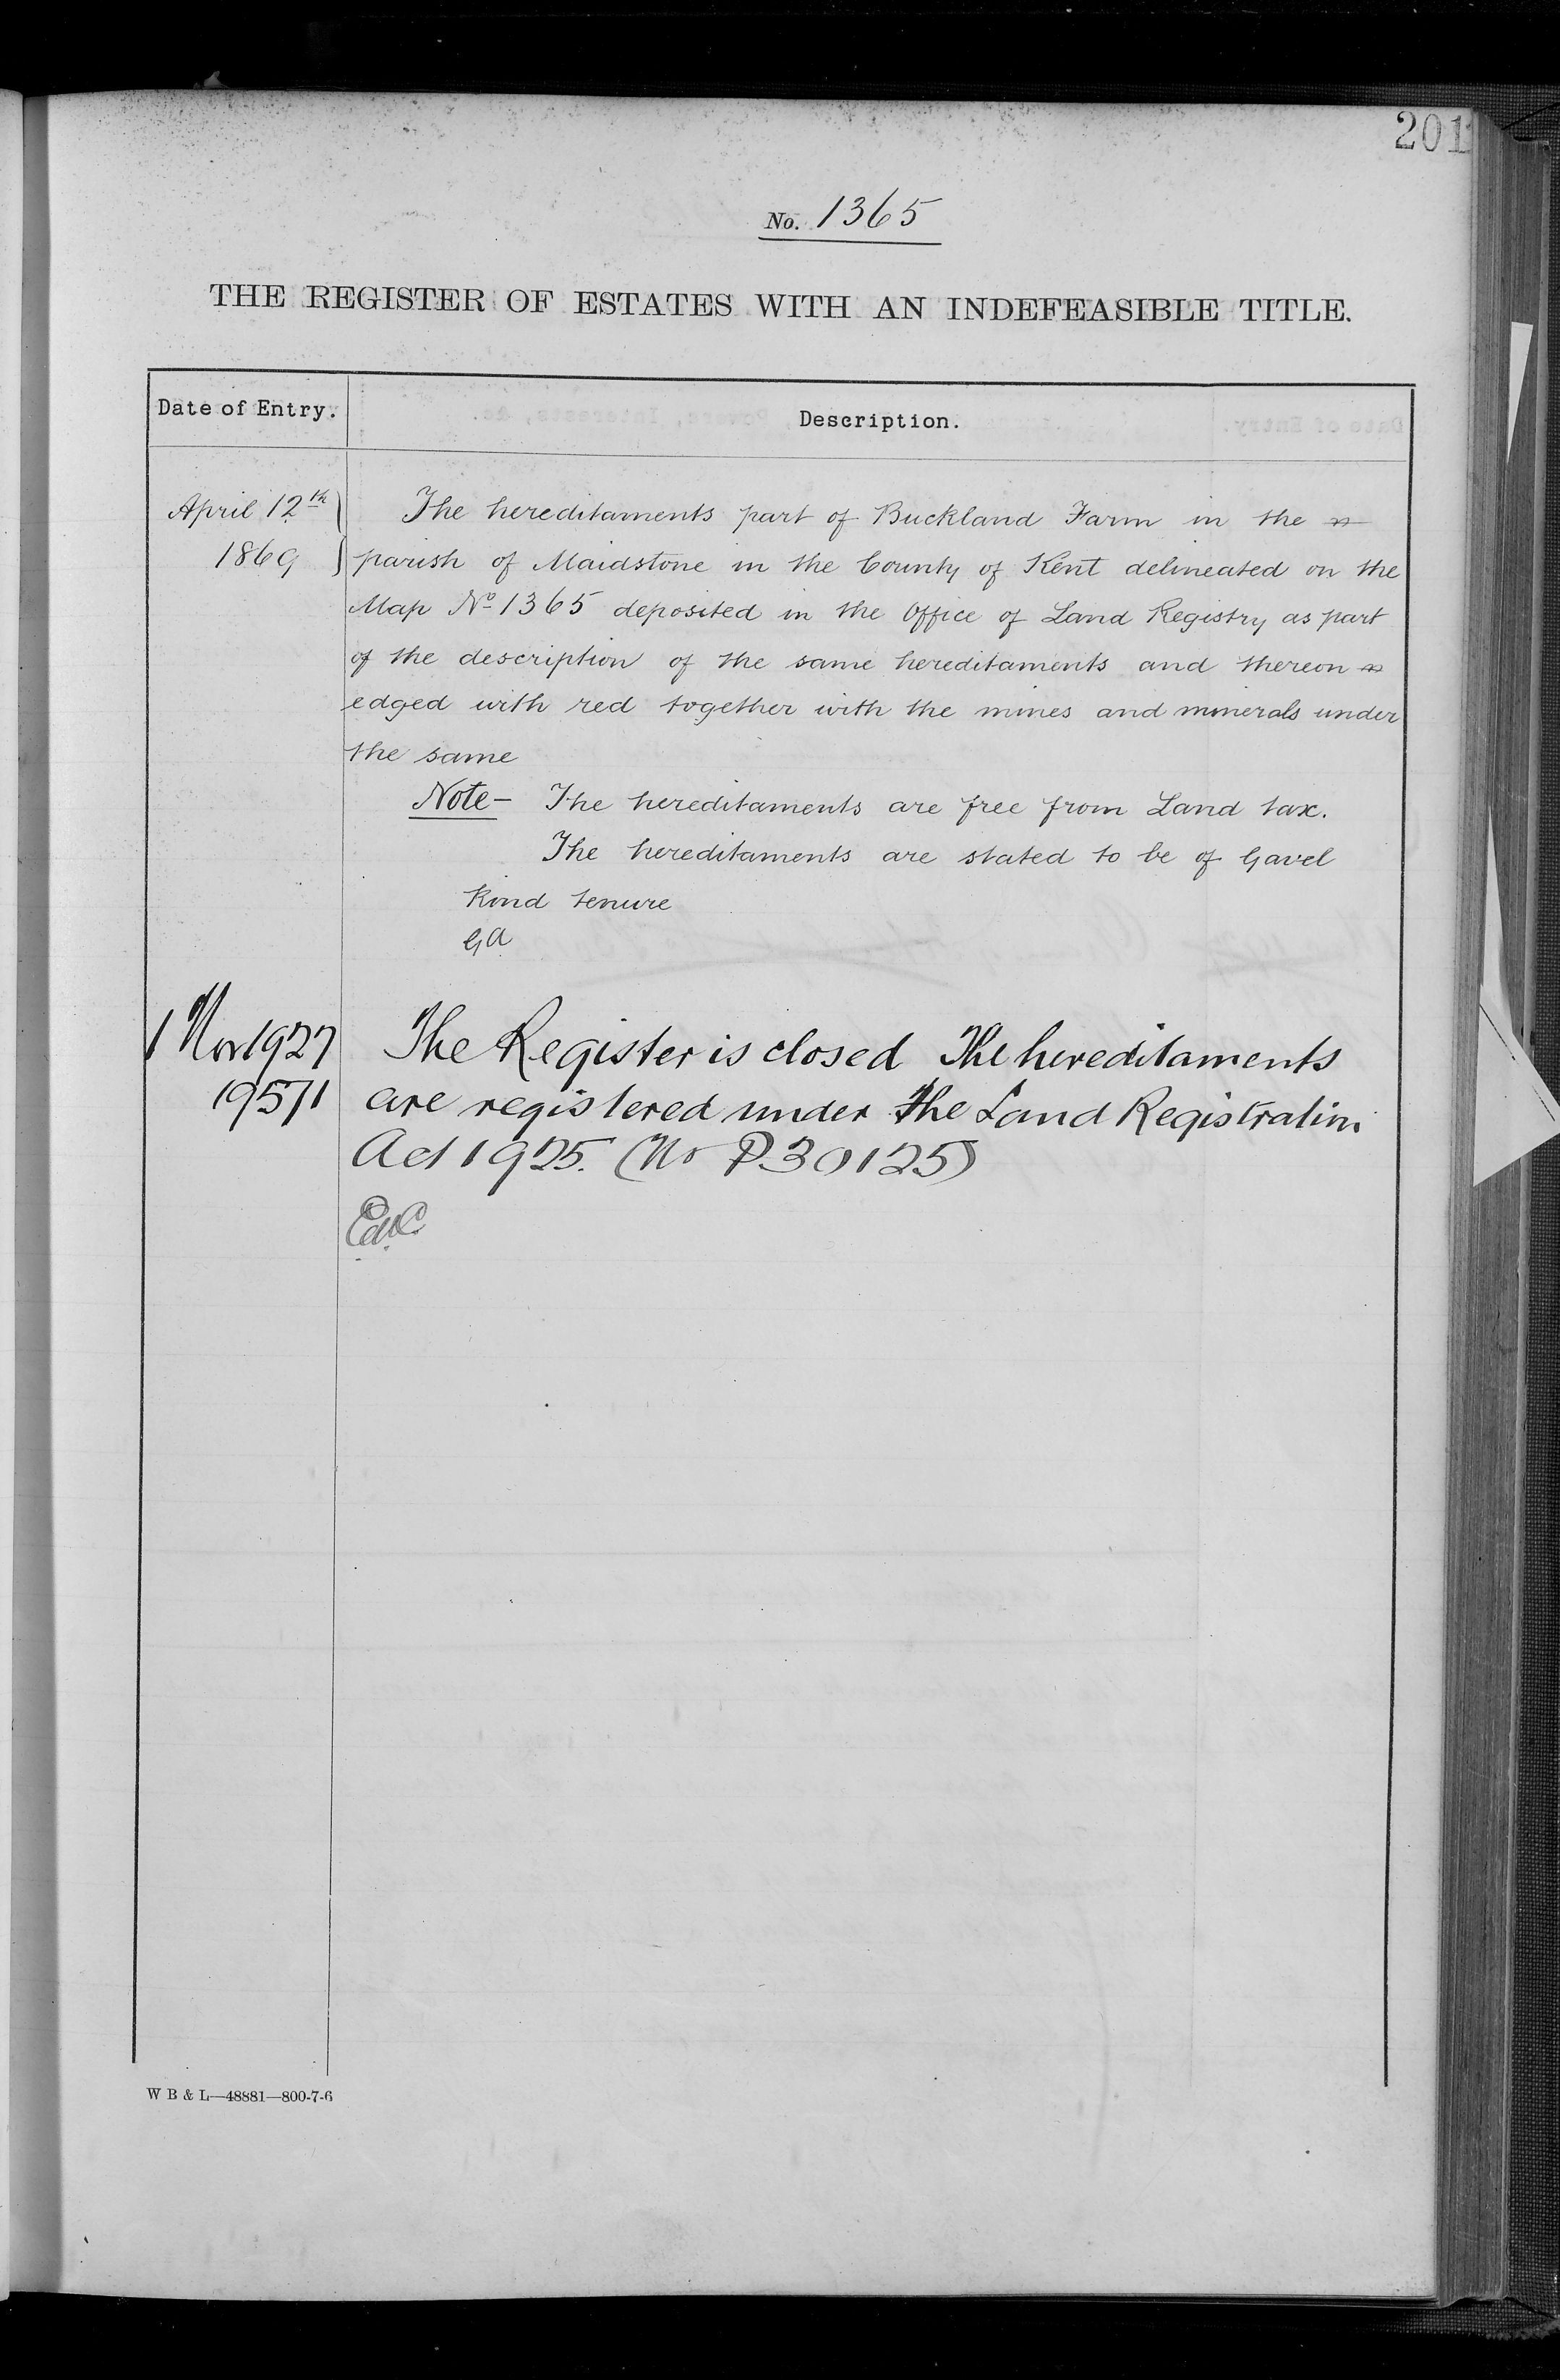 201
No. 1365
THE REGISTER OF ESTATES WITH AN INDEFEASIBLE TITLE.
Date of Entry.
Description.
April 12th
1869
The hereditaments part of Buckland Farm in the
parish of Maidstone in the County of Kent delineated on the
Map No 1365 deposited in the Office of Land Registry as part
of the description of the same hereditaments and thereon
edged with red together with the mines and minerals under
the same
Note- The hereditaments are free from Land tax.
The hereditaments are stated to be of Gavel
kind tenure
GA
1 Nov 1927
19571
The Register is closed The hereditaments
are registered under the Land Registration
Act 1925. (No P30125)
W B & L—48881—800-7-6